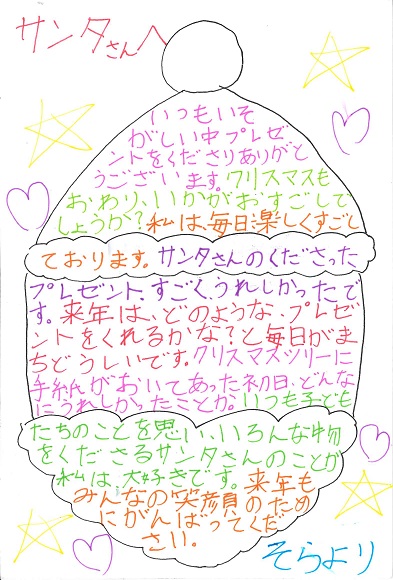 サンタさんへ
いつもいそ
がしい中プレゼ
ントをくださりありがと
うございます。クリスマスも
おわり、いかがおすごしで
しょうか?私は、毎日楽しくすごし
ております。サンタさんのくださった
プレゼント、すごくうれしかったで
す。来年は、どのような、プレゼ
ントをくれるかな?と毎日がま
ちどうしいです。クリスマスツリーに
手紙がおいてあった初日、どんな
にうれしかったことか。いつも子ども
たちのことを思い、いろんな物
をくださるサンタさんのことが
私は、大好きです。来年も
みんなの笑顔のため
にがんばってくだ
さい。
そらより